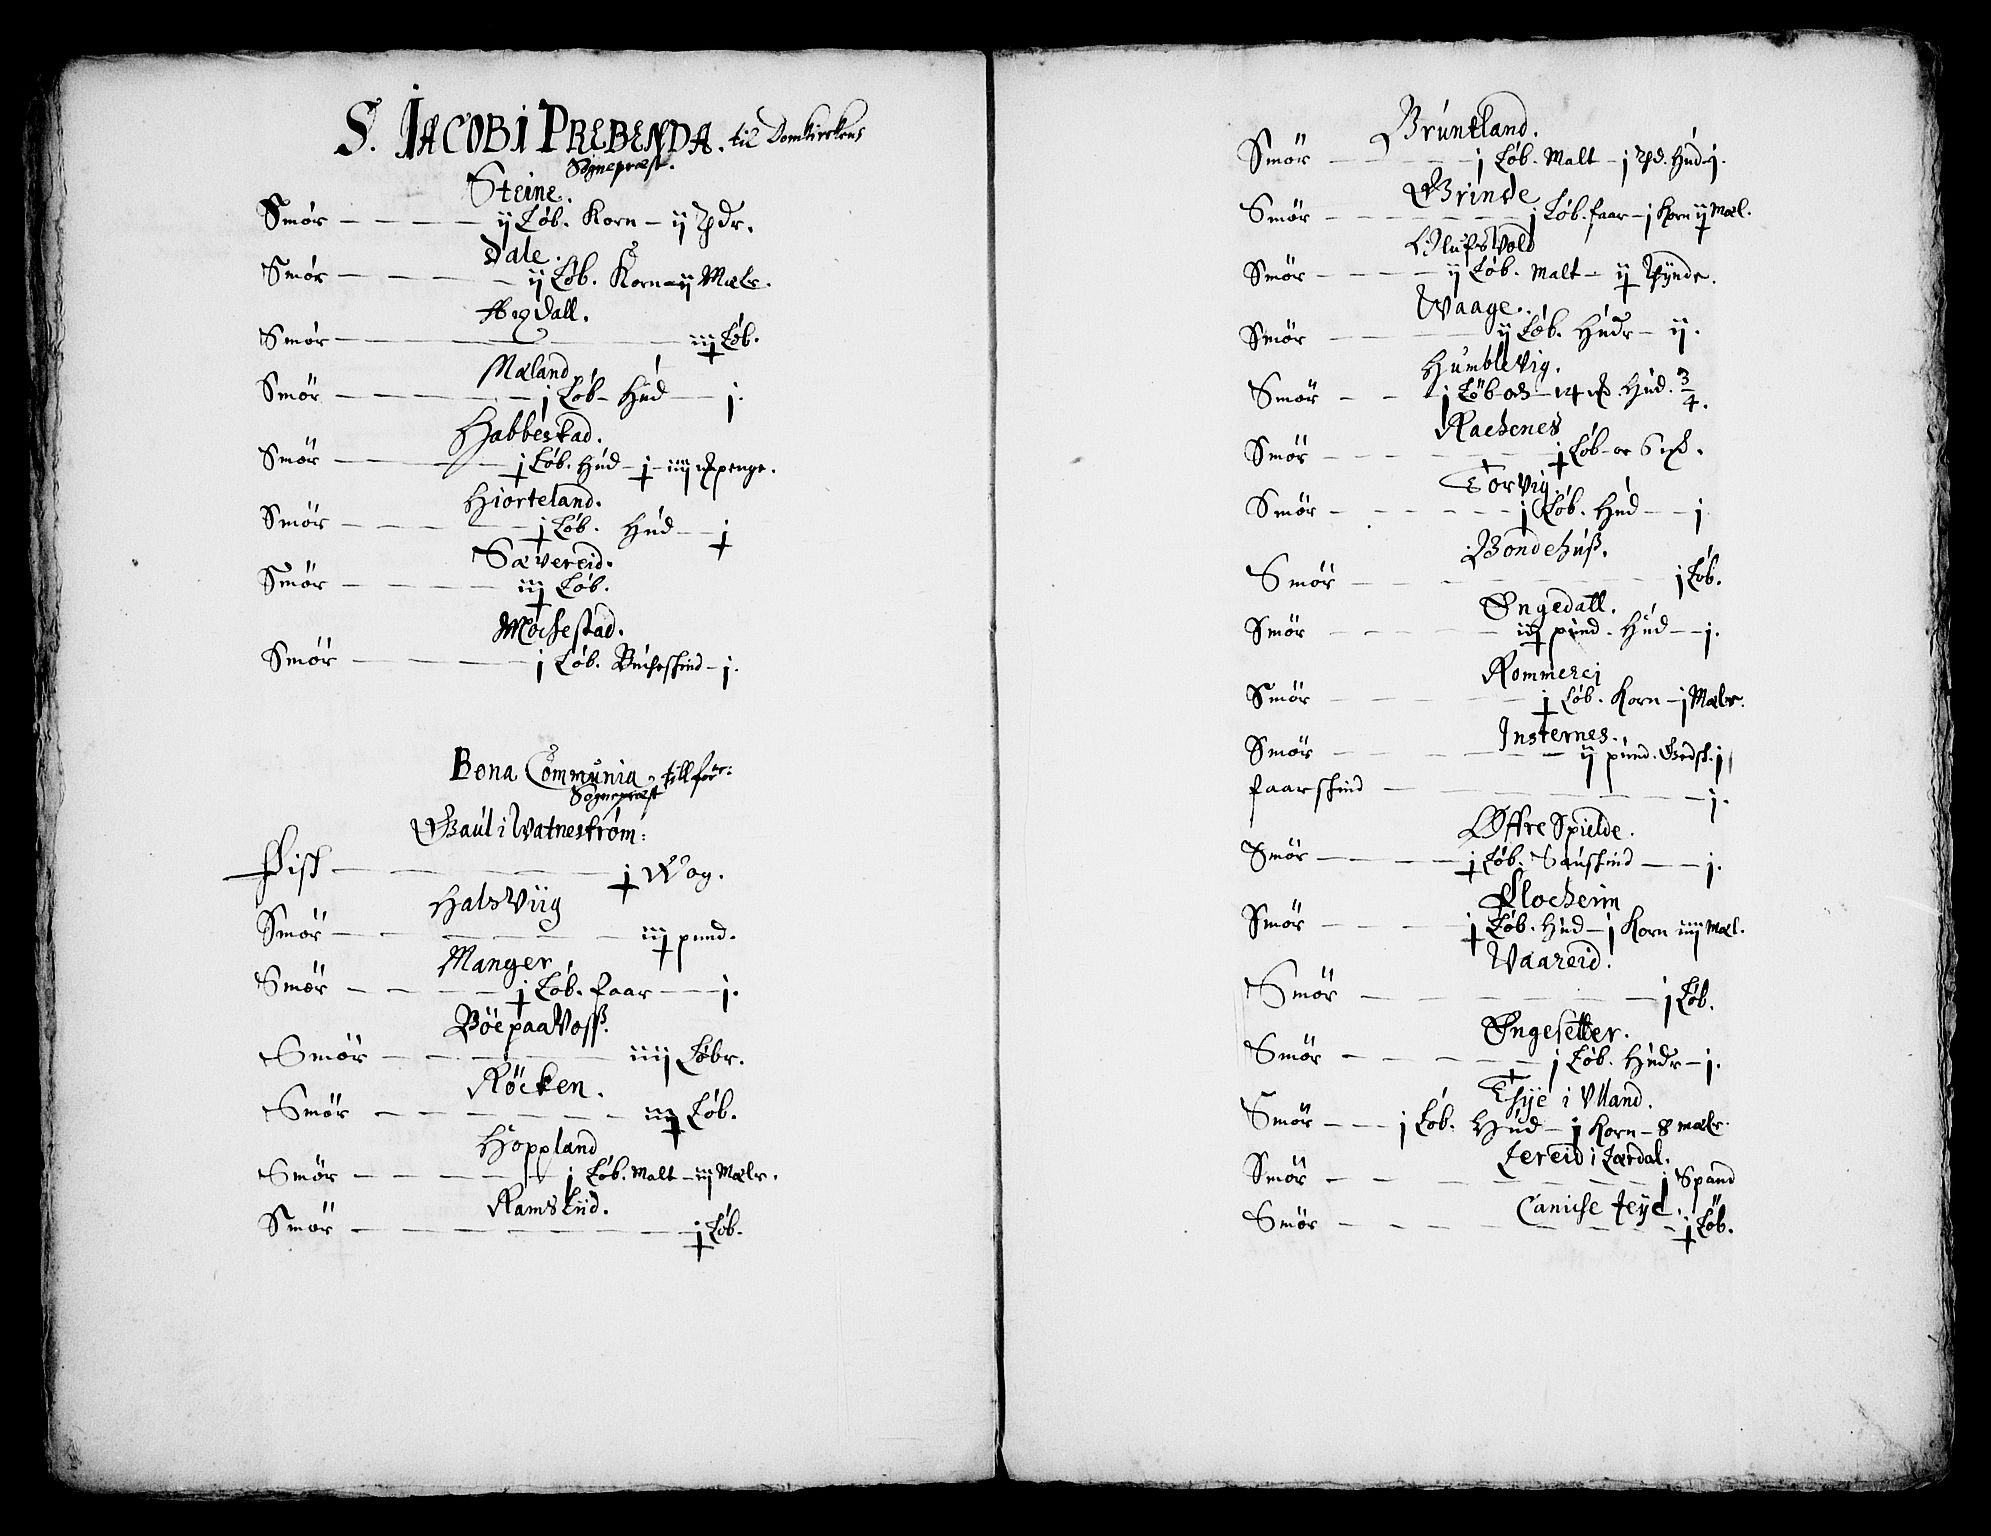 S. JACOBI PREBENDA. til Domkirckens
Sognepræst.
Steine.
Smör — — — — ij Løb. Korn — ij
Dale.
Smör — — — — ij Løb. Korn — ij Mæle.
Smör — — — — iij Løb.
Mæland
Smör — — — — j Løb — Hud — j.
Habbestad.
Smör — — — — j Løb. Hud — j — iiij penge.
Hiorteland.
Smör — — — — j Løb. Hud — j
Sævereid.
Smör — — — — iij Løb.
Mochestad.
Smör — — — — j Løb. Bucheskind — j.
Bona Communia, till for:
Sognepræst
Gaul i Watneström:
Fisk — — — — j Wog.
Halsviig
Smör — — — — iij pund.
Manger
Smör — — — — j Løb. faar — j.
Böe paa Voss.
Smör — — — — iiij Løbr.
Röcken.
Smör — — — — iij Løb.
Hoppland
Smör — — — — j Løb. Malt — iij Mælr.
Ramsliid.
Smör — — — — j Løb.
Bruntland.
Smör — — — — j Løb. Malt — j Hud — j.
Grinde
Smör — — — — j Løb. faar — j Korn ij Mæl.
Olufsvold
Smör — — — — ij Løb. Malt — ij Tynde.
Waage.
Smör — — — — ij Løb. Hudr — ij.
Humblevig.
Smör — — j Løb och — 14 Hud. 3/4.
Rachenes
Smör — — — — j Løb — oc 6
Torvig.
Smör — — — — j Løb. Hud — j
Bondehuß.
Smör — — — — j Løb.
Engedall.
Smör — — — — iij pund. Hud — j.
Rommerej
Smör — — — — j Løb. Korn — j Mælr.
Insternes.
Smör — — — — ij pund. Gedsk. j
faarskind — — — — j.
Øffre Spielde.
Smör — — — — j Løb. Sauskind — j.
Flocheim
Smör — — — — j Løb. Hud — j Korn iiij Mæl.
Vaareid.
Smör — — — — j Løb.
Engesetter.
Smör — — — — j Løb. Hudr — j.
Thije i Ulland.
Smör — — — j Løb. Hud — j Korn — 8 mælr.
Jereid i Lærdal.
Smör — — — — j Spand
Caniche Jeye.
Smör — — — — j Løb.